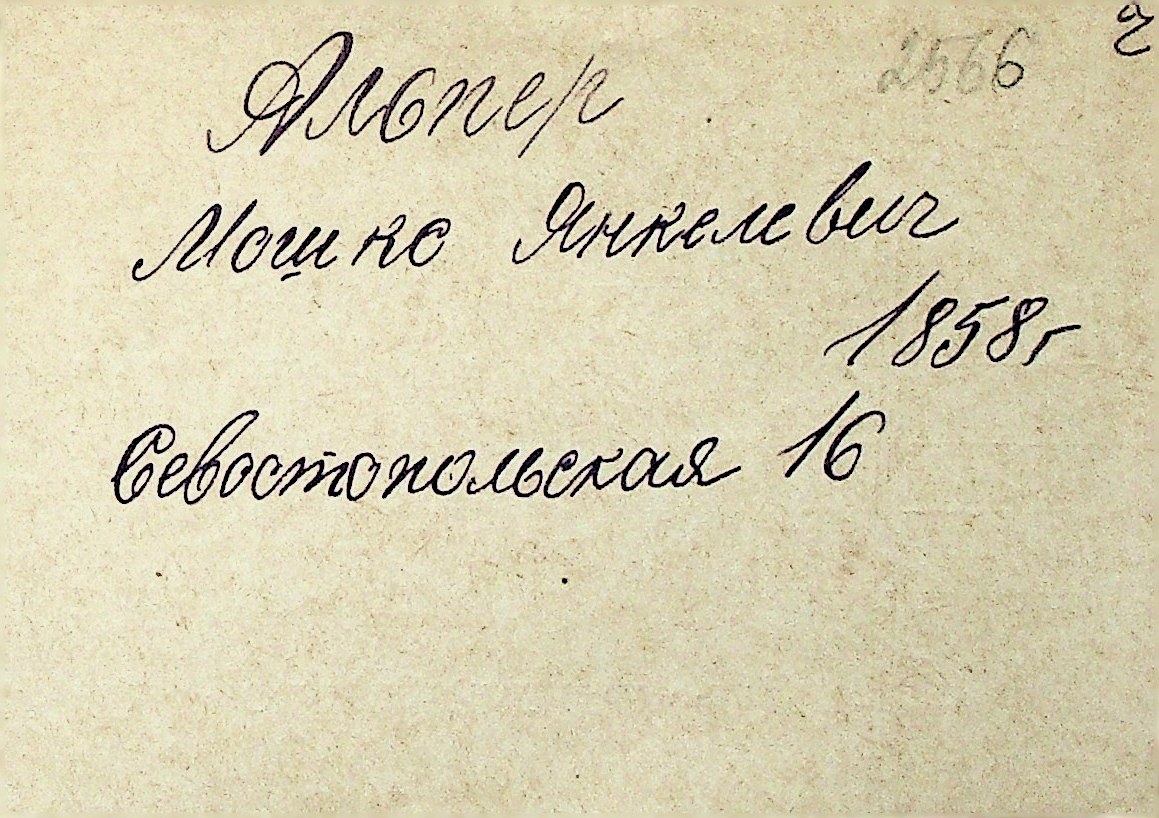 2566
Альпер
Мошко Янкелевич
1858г
Севостопольская 16